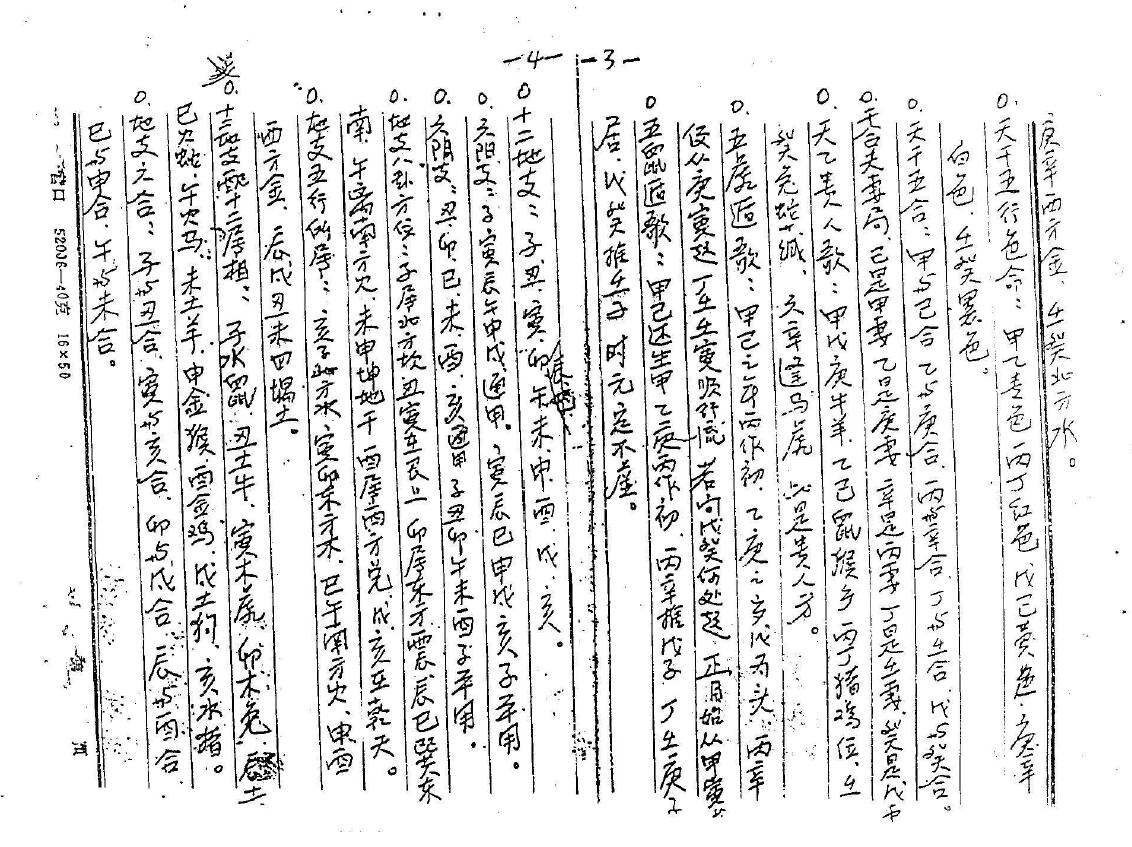 -3-
庚辛西方金、壬癸北方水。
0. 天干五行色命：甲乙青色 丙丁红色 戊己黄色 庚辛
白色、壬癸黑色。
0. 天干五合：甲与己合 乙与庚合、丙与辛合 丁与壬合 戊与癸合。
0. 干合夫妻局、己是甲妻 乙是庚妻 辛是丙妻 丁是壬妻 癸是戊
0. 天乙贵人歌：甲戊庚牛羊、乙己鼠猴乡 丙丁猪鸡位、壬
癸兔蛇藏、六辛逢马虎 此是贵人方。
0. 五虎遁歌：甲己之年丙作初、乙庚之岁戊为头、丙辛
便从庚寅起 丁壬壬寅顺行流 若向戊癸何处起 正月始从甲寅
0 五鼠遁歌：甲己还生甲 乙庚丙作初、丙辛推戊子 丁壬庚子
居、戊癸推壬子 时元定不虚。
-4-
0 十二地支：子、丑、寅、卯 午、未、申、酉、戌、亥。
0. 六阳支：子寅辰午申戌通用。寅辰巳申戌亥子
0. 六阴支：丑、卯、巳、未、酉、亥通用 子丑卯午未酉
0. 地支八卦方位：子居北方坎 丑寅在艮上 卯居东方震、辰巳巽东
南、午离南方火、未申坤地干 酉居西方兑、戌亥在乾天。
0. 地支五行的居：亥子北方水 寅卯东方木、巳午南方火、申酉
西方金、辰戌丑未四塌土。
0. 十二地支配十二属相：子水鼠 丑土牛、寅木虎、卯木兔、辰土
巳火蛇、午火马、未土羊、申金猴 酉金鸡、戌土狗、亥水猪。
0. 地支六合：子与丑合、寅与亥合、卯与戌合、辰与酉合、
巳与申合、午与未合。
52026—40克 16×50